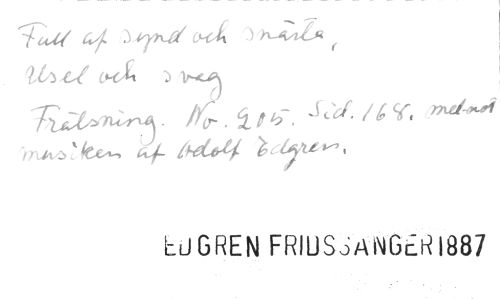 Full af synd och smärta,
Usel och svag
Frälsning. No. 205. Sid. 168. mel-not
musiken af Adolf Edgren.
EDGREN FRIDSSÅNGER 1887